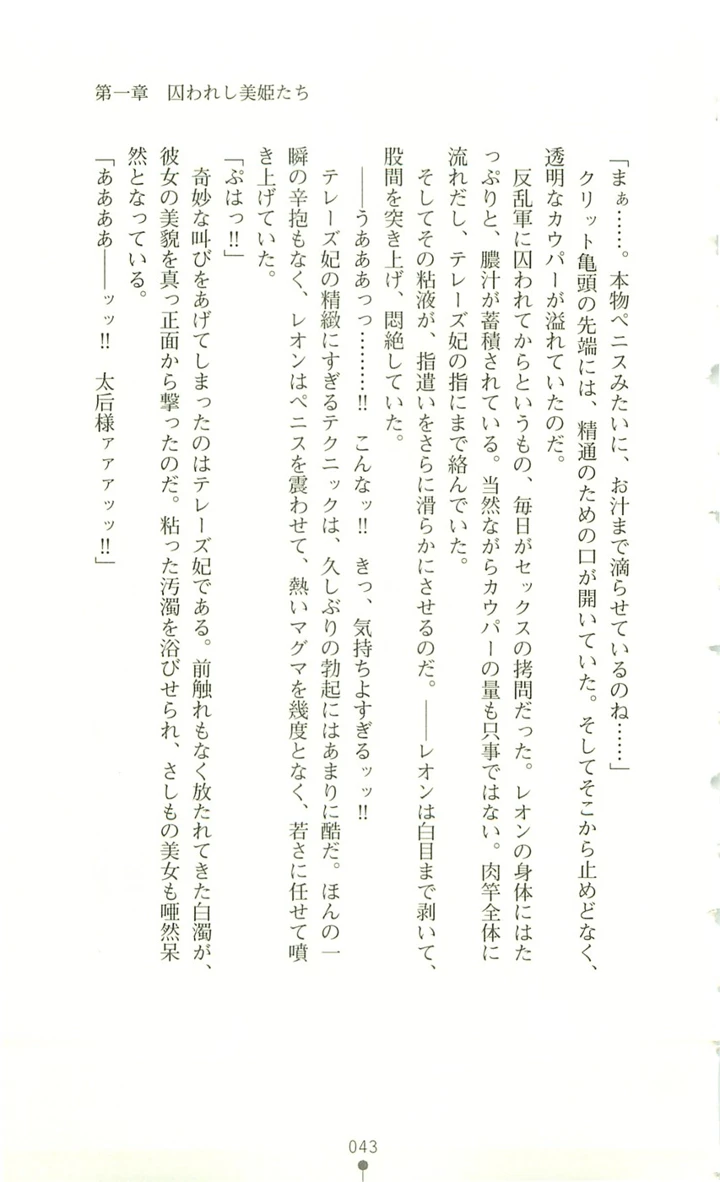 第一章　囚われし美姫たち
「まぁ……。本物ペニスみたいに、お汁まで滴らせているのね……」
クリット亀頭の先端には、精通のための口が開いていた。そしてそこから止めどなく、
透明なカウパーが溢れていたのだ。
反乱軍に囚われてからというもの、毎日がセックスの拷問だった。レオンの身体にはた
っぷりと、膿汁が蓄積されている。当然ながらカウパーの量も只事ではない。肉竿全体に
流れだし、テレーズ妃の指にまで絡んでいた。
そしてその粘液が、指遣いをさらに滑らかにさせるのだ。――レオンは白目まで剥いて、
股間を突き上げ、悶絶していた。
――うあああっっ………!!　こんなッ!!　きっ、気持ちよすぎるッッ!!
テレーズ妃の精緻にすぎるテクニックは、久しぶりの勃起にはあまりに酷だ。ほんの一
瞬の辛抱もなく、レオンはペニスを震わせて、熱いマグマを幾度となく、若さに任せて噴
き上げていた。
「ぷはっ!!」
奇妙な叫びをあげてしまったのはテレーズ妃である。前触れもなく放たれてきた白濁が、
彼女の美貌を真っ正面から撃ったのだ。粘った汚濁を浴びせられ、さしもの美女も唖然呆
然となっている。
「ああああ――ッッ!!　太后様ァァァッッ!!」
043